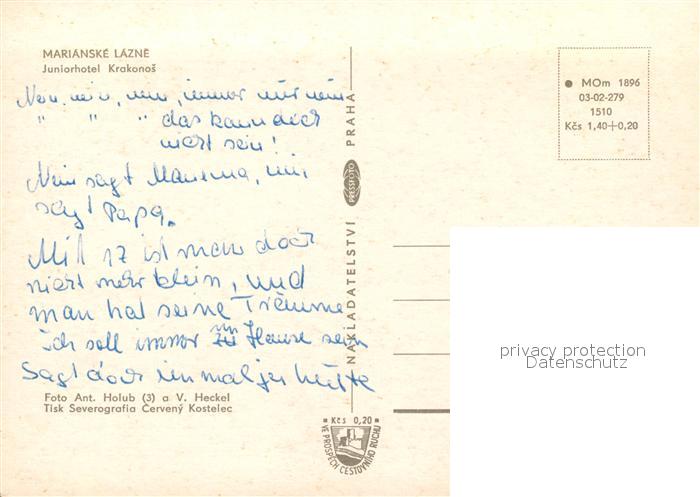 MARIÁNSKÉ LÁZNĚ
Juniorhotel Krakonoš
Nein, nein, nein, immer nur nein
" " " das kann doch
nicht sein!
Nein sagt Mamma, nein
sagt Papa.
Mit 17 ist man doch
nicht mehr klein, und
man hat seine Träume
ich soll immer zu Hause sein
Sagt doch einmal ja
Foto Ant. Holub (3) a V. Heckel
Tisk Severografia Červený Kostelec
NAKLADATELSTVÍ PRESSFOTO PRAHA
MOm 1896
03-02-279
1510
Kčs 1,40+0,20
privacy protection
Datenschutz
Kčs 0,20
VE PROSPĚCH CESTOVNÍHO RUCHU